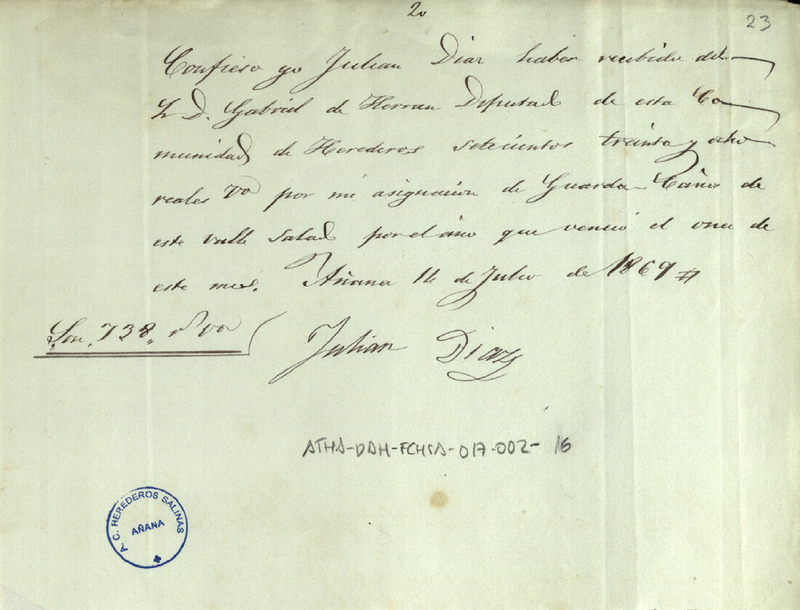 20
23
Confieso yo Julian Diaz haber recibido del
S. D. Gabriel de Herran Diputado de esta Co
munidad de Herederos setecientos treinta y ocho
reales von por mi asignacion de Guarda-Caños de
este valle Salado por el año que venció el once de
este mes. Añana 14 de Julio de 1869
Son, 738, rs von
Julian Diaz
ATHA-DAH-FCHSA-017-002-16
A. C. HEREDEROS SALINAS
AÑANA